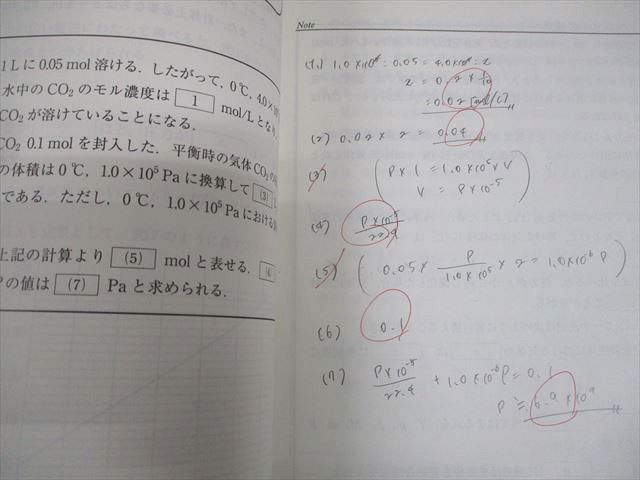 1Lに0.05 mol溶ける．したがって，0℃，4.0×10
水中のCO₂のモル濃度は 1 mol/Lとなり
CO₂が溶けていることになる．
CO₂ 0.1 molを封入した．平衡時の気体CO₂の
の体積は0℃，1.0×10⁵ Paに換算して (3)
である．ただし，0℃，1.0×10⁵ Paにおける
上記の計算より (5) molと表せる． (6)
Pの値は (7) Paと求められる．
Note
(1) 1.0×10⁵ : 0.05 = 4.0×10⁴ : x
= 0.02 [mol/L]
(2) 0.02 × 2 = 0.04
(3) ( P×1 = 1.0×10⁵×V
V = P×10⁻⁵ )
(4) P×10⁻⁵
22.4
(5) ( 0.05 × P/1.0×10⁵ × 2 = 1.0×10⁻⁶ P )
(6) 0.1
(7) P×10⁻⁵/22.4 + 1.0×10⁻⁶P = 0.1
P ≒ 6.9×10⁴